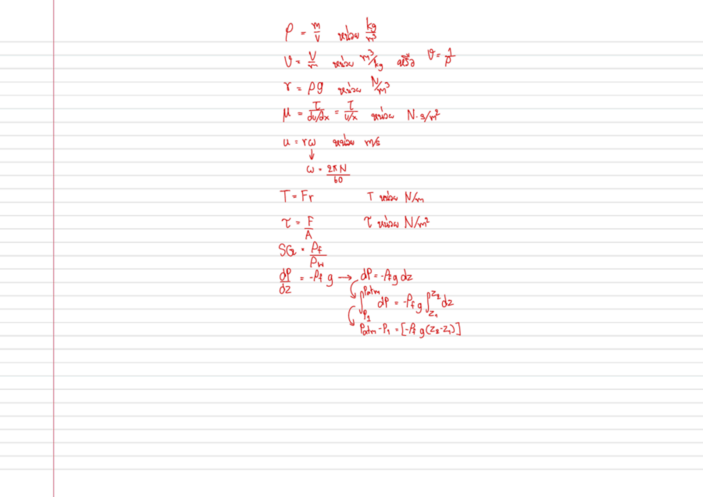 ρ = m/V หน่วย kg/m³
v = V/m หน่วย m³/kg หรือ v = 1/ρ
γ = ρg หน่วย N/m³
μ = τ/(du/dx) = τ/(u/x) หน่วย N·s/m²
u = rω หน่วย m/s
↓
ω = 2πN/60
T = Fr T หน่วย N/m
τ = F/A τ หน่วย N/m²
SG = ρf/ρw
dP/dz = -ρf g → dP = -ρf g dz
∫_{P1}^{Patm} dP = -ρf g ∫_{z1}^{z2} dz
Patm - P1 = [-ρf g (z2-z1)]